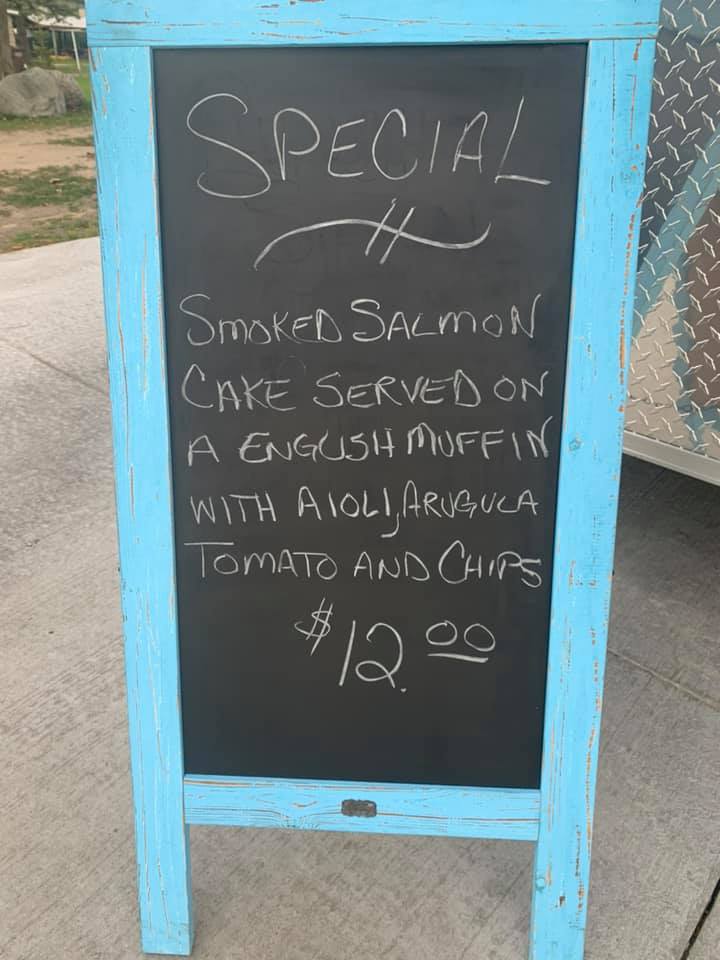 SPECIAL
SMOKED SALMON
CAKE SERVED ON
A ENGLISH MUFFIN
WITH AIOLI, ARUGULA
TOMATO AND CHIPS
$12.00